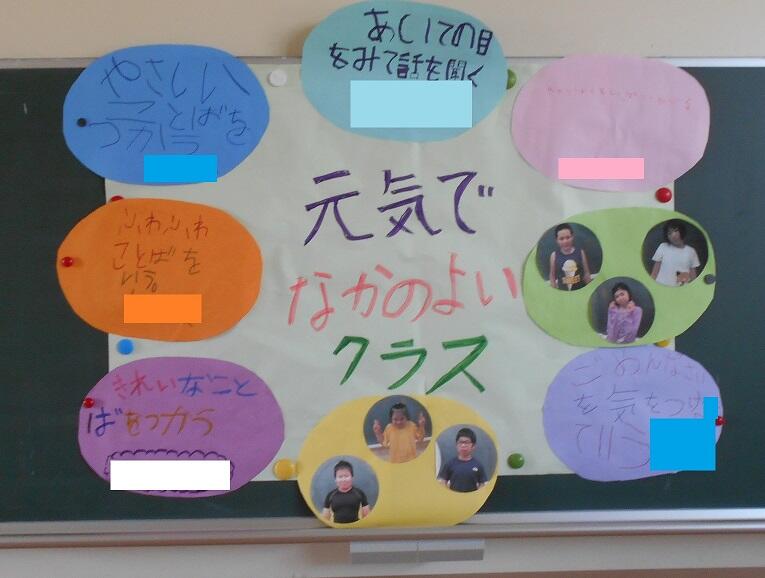 あいての目
をみて話を聞く
やさしい
ことばを
つかう
元気で
なかのよい
クラス
ふわふわ
ことばを
いう
きれいなこと
ばをつかう
ごめんなさい
を気をつけ
ていう